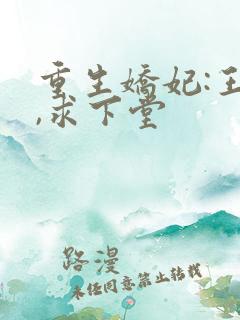 重生嬌妃:王
,求下堂
路漫
未经同意禁止转载